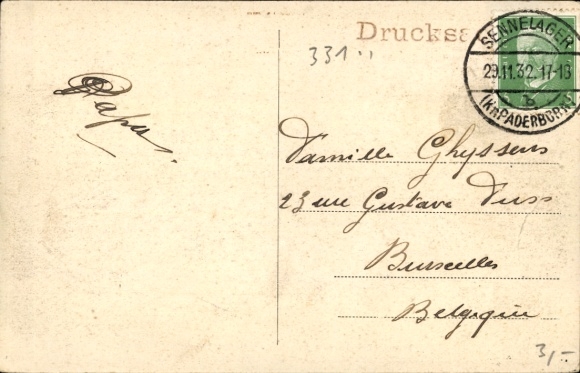 Drucksa
331..
SENNELAGER
29.11.32.17-18
b
(KR. PADERBORN)
Papa.
Famille Ghyssens
23 rue Gustave Fuss
Bruxelles
Belgique
3,-